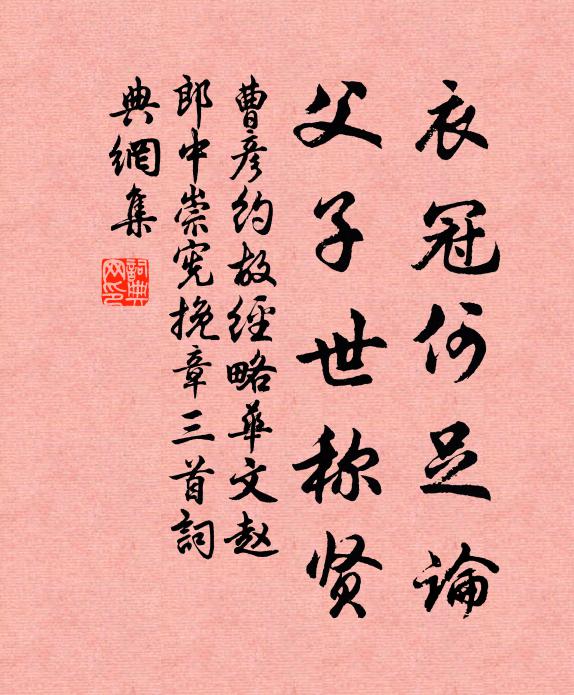 衣冠何足論
父子世称贤
曹彦约故經略華文赵
郎中崇宪挽章三首詞
典網集
詞典
网印